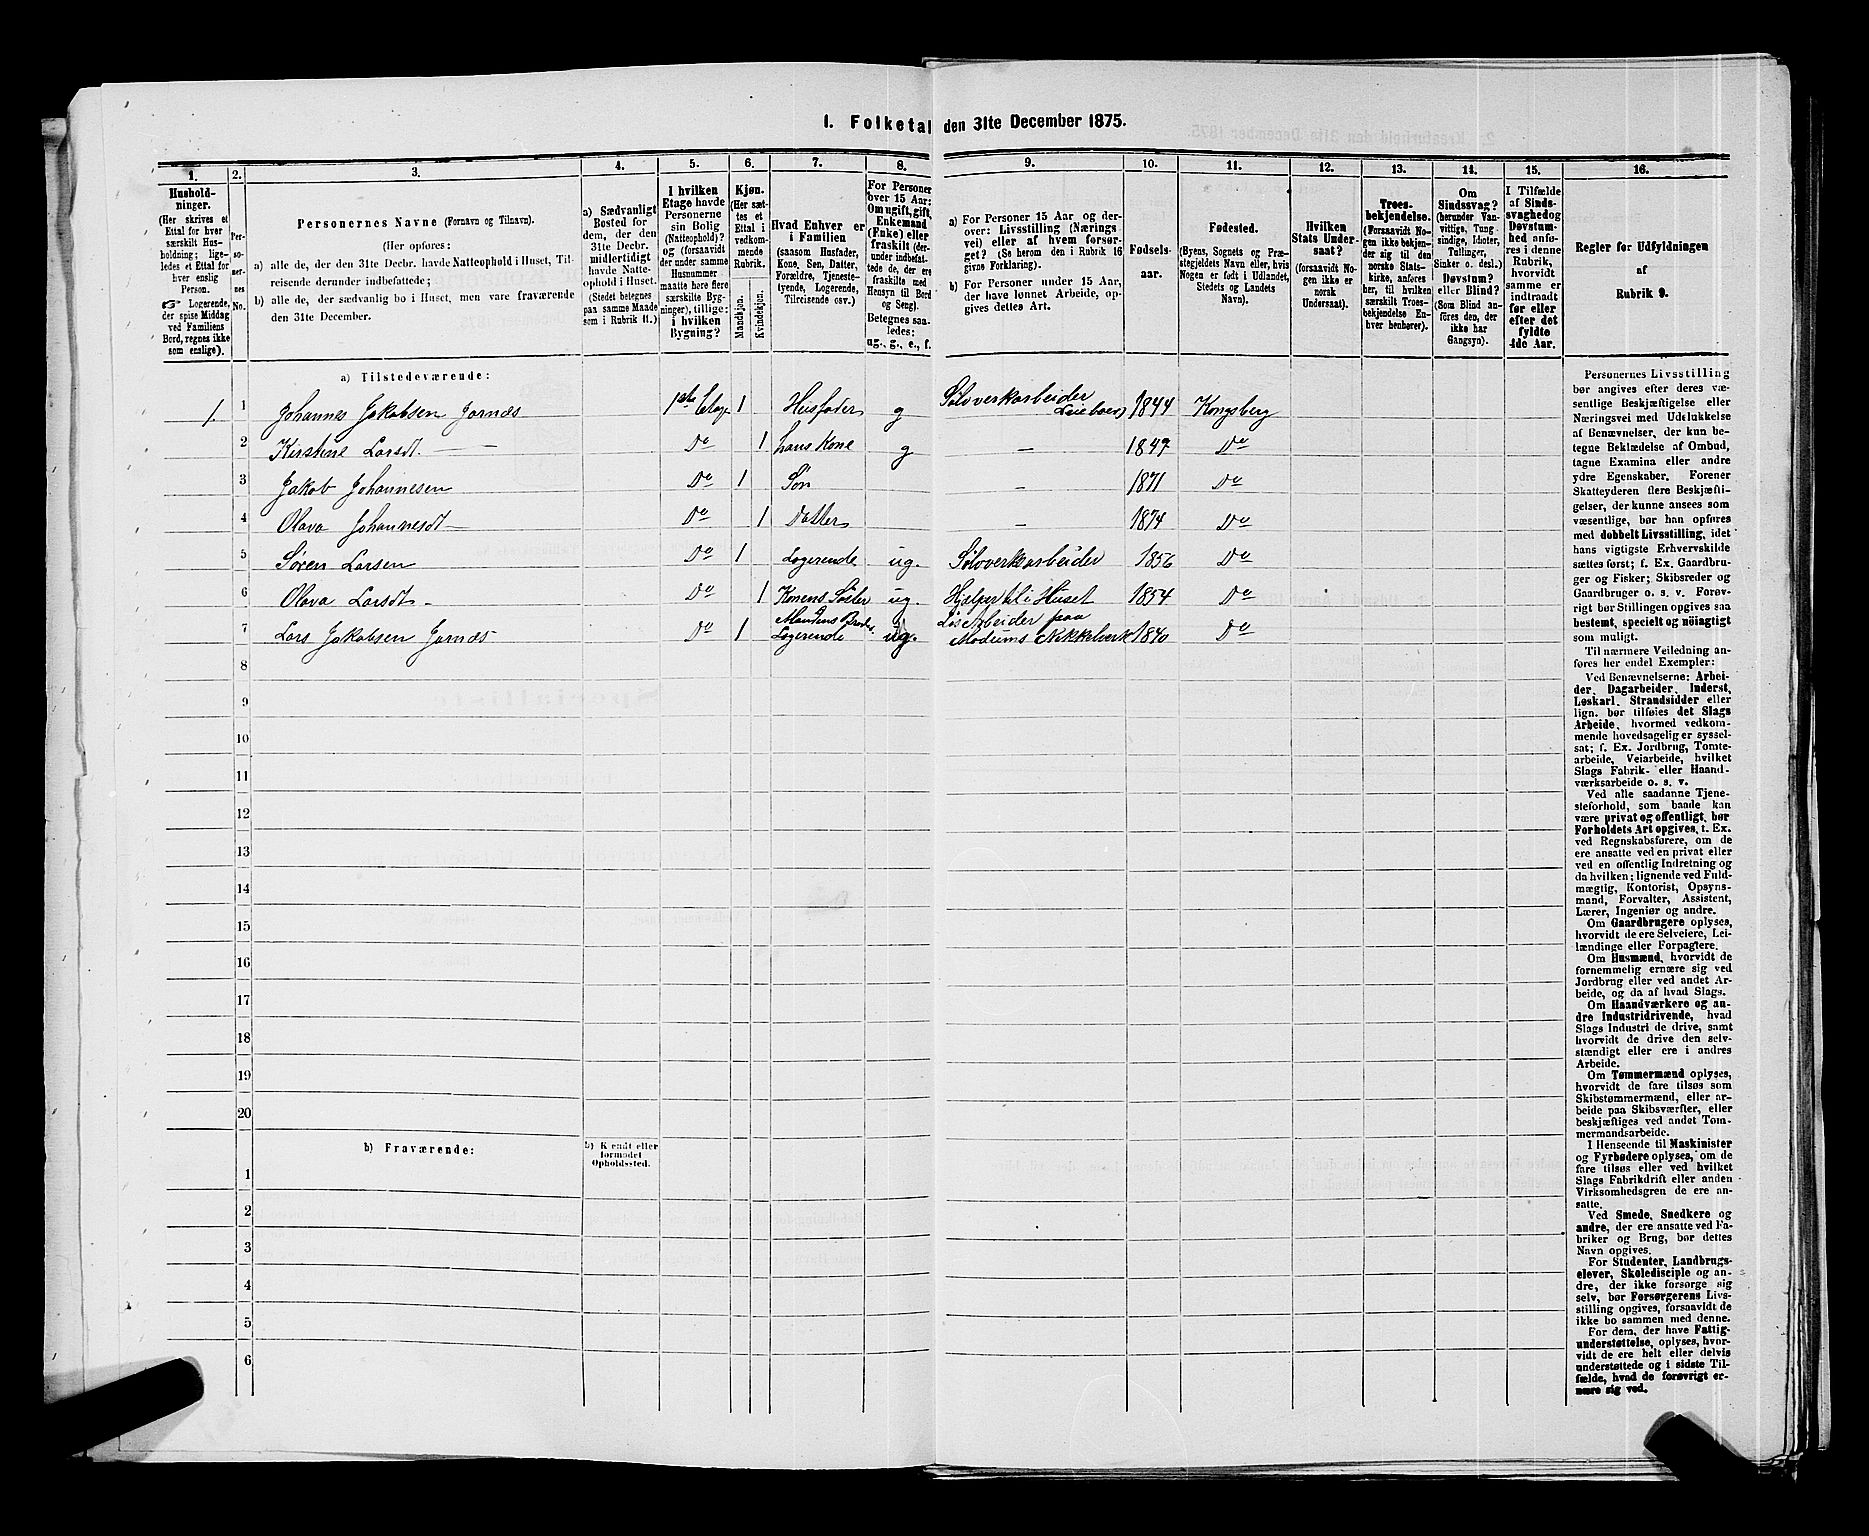 1. Folketal den 31te December 1875.
1.
2.
3.
4.
5.
6.
7.
8.
9.
10.
11.
12.
13.
14.
15.
16.
Hushold-
ninger.
(Her skrives et
Ettal for hver
særskilt Hus-
holdning; lige-
ledes et Ettal for
hver enslig
Person.
☞ Logerende,
der spise Middag
ved Familiens
Bord, regnes ikke
som enslige).
Per-
so-
ner-
nes
No.
Personernes Navne (Fornavn og Tilnavn).
(Her opføres:
a) alle de, der den 31te Decbr. havde Natteophold i Huset, Til-
reisende derunder indbefattede;
b) alle de, der sædvanlig bo i Huset, men vare fraværende
den 31te December.
a) Sædvanligt
Bosted for
dem, der den
31te Decbr.
midlertidigt
havde Natte-
ophold i Huset.
(Stedet betegnes
paa samme Maade
som i Rubrik 11.)
I hvilken
Etage havde
Personerne
sin Bolig
(Natteophold)?
og (forsaavidt
der under samme
Husnummer
maatte høre flere
særskilte Byg-
ninger), tillige:
i hvilken
Bygning?
Kjøn.
(Her sæt-
tes et
Ettal i
vedkom-
mende
Rubrik.
Mandkjøn.
Kvindekjøn.
Hvad Enhver er
i Familien
(saasom Husfader,
Kone, Søn, Datter,
Forældre, Tjeneste-
tyende, Logerende,
Tilreisende osv.)
For Personer
over 15 Aar:
Om ugift, gift,
Enkemand
(Enke) eller
fraskilt (der-
under indbefat-
tede de, der ere
fraskilte med
Hensyn til Bord
og Seng).
Betegnes saa-
ledes:
ug., g., e., f.
a) For Personer 15 Aar og der-
over: Livsstilling (Nærings-
vei) eller af hvem forsør-
get? (Se herom den i Rubrik 16
givne Forklaring).
b) For Personer under 15 Aar,
der have lønnet Arbeide, op-
gives dettes Art.
Fødsels-
aar.
Fødested.
(Byens, Sognets og Præ-
stegjeldets Navn eller, hvis
Nogen er født i Udlandet,
Stedets og Landets
Navn).
Hvilken
Stats Under-
saat?
(forsaavidt No-
gen ikke er
norsk
Undersaat).
Troes-
bekjendelse.
(Forsaavidt No-
gen ikke bekjen-
der sig til den
norske Stats-
kirke, anføres
her, til hvilken
særskilt Troes-
bekjendelse En-
hver henhører).
Om
Sindssvag?
(herunder Van-
vittige, Tung-
sindige, Idioter,
Tullinger,
Sinker o. desl.)
Døvstum?
eller Blind?
(Som Blind an-
føres den, der
ikke har
Gangsyn).
I Tilfælde
af Sinds-
svaghed og
Døvstum-
hed anfø-
res i denne
Rubrik,
hvorvidt
samme er
indtraadt
før eller
efter det
fyldte
4de Aar.
Regler for Udfyldningen
af
Rubrik 9.
a) Tilstedeværende:
1. 1 Johannes Jakobsen Jornæs 1ste Etage 1 Husfader g Sølvverksarbeider Leieboer 1844 Kongsberg
2 Kirstine Larsdt. — Do 1 hans Kone g — 1847 Do
3 Jakob Johannesen Do 1 Søn — 1871 Do
4 Olava Johannesdt — Do 1 Datter — 1874 Do
5 Søren Larsen Do 1 Logerende ug. Sølvverksarbeider 1856 Do
6 Olava Larsdt — Do 1 Konens Søster ug. Hjælper til i Huset 1854 Do
7 Lars Jakobsen Jornæs Do 1 Mandens Broder Logerende ug. Løs Arbeider paa Modums Nikkelverk 1840 Do
8
9
10
11
12
13
14
15
16
17
18
19
20
b) Fraværende:
b) Kendt eller
formodet
Opholdssted.
1
2
3
4
5
6
Personernes Livsstilling
bør angives efter deres væ-
sentlige Beskjæftigelse eller
Næringsvei med Udelukkelse
af Benævnelser, der kun be-
tegne Beklædelse af Ombud,
tagne Examina eller andre
ydre Egenskaber. Forener
Skatteyderen flere Beskjæfti-
gelser, der kunne ansees som
væsentlige, bør han opføres
med dobbelt Livsstilling, idet
hans vigtigste Erhvervskilde
sættes først; f. Ex. Gaardbru-
ger og Fisker; Skibsreder og
Gaardbruger o. s. v. Forøv-
rigt bør Stillingen opgives saa
bestemt, specielt og nöiagtigt
som muligt.
Til nærmere Veiledning an-
føres her endel Exempler:
Ved Benævnelserne: Arbei-
der, Dagarbeider, Inderst,
Løskarl, Strandsidder eller
lign. bør tilføies det Slags
Arbeide, hvormed vedkom-
mende hovedsagelig er syssel-
sat; f. Ex. Jordbrug, Tomte-
arbeide, Veiarbeide, hvilket
Slags Fabrik- eller Haand-
værksarbeide o. s. v.
Ved alle saadanne Tjene-
steforhold, som baade kan
være privat og offentligt, bør
Forholdets Art opgives, t. Ex.
ved Regnskabsførere, om de
ere ansatte ved en privat eller
ved en offentlig Indretning og
da hvilken; lignende ved Fuld-
mægtig, Kontorist, Opsyns-
mand, Forvalter, Assistent,
Lærer, Ingeniør og andre.
Om Gaardbrugere oplyses,
hvorvidt de ere Selveiere, Lei-
lændinge eller Forpagtere.
Om Husmænd, hvorvidt de
fornemmelig ernære sig ved
Jordbrug eller ved andet Ar-
beide, og da af hvad Slags.
Om Haandværkere og an-
dre Industridrivende, hvad
Slags Industri de drive, samt
hvorvidt de drive den selv-
stændigt eller ere i andres
Arbeide.
Om Tømmermænd oplyses,
hvorvidt de fare tilsøs som
Skibstømmermænd, eller ar-
beide paa Skibsværfter, eller
beskjæftiges ved andet Tøm-
mermandsarbeide.
I Henseende til Maskinister
og Fyrbødere oplyses, om de
fare tilsøs eller ved hvilket
Slags Fabrikdrift eller anden
Virksomhedsgren de ere an-
satte.
Ved Smede, Snedkere og
andre, der ere ansatte ved Fa-
briker og Brug, bør dettes
Navn opgives.
For Studenter, Landbrugs-
elever, Skoledisciple og an-
dre, der ikke forsørge sig
selv, bør Forsørgerens Livs-
stilling opgives, forsaavidt de
ikke bo sammen med denne.
For dem, der have Fattig-
understøttelse, oplyses, hvor-
vidt de ere helt eller delvis
understøttede og i sidste Til-
fælde, hvad de forøvrigt er-
nære sig ved.